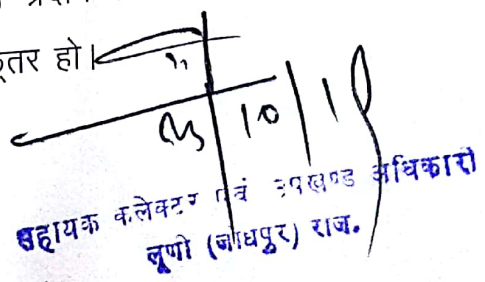 तर हो।
10/1
सहायक कलेक्टर एवं उपखण्ड अधिकारी
लूणी (जोधपुर) राज.